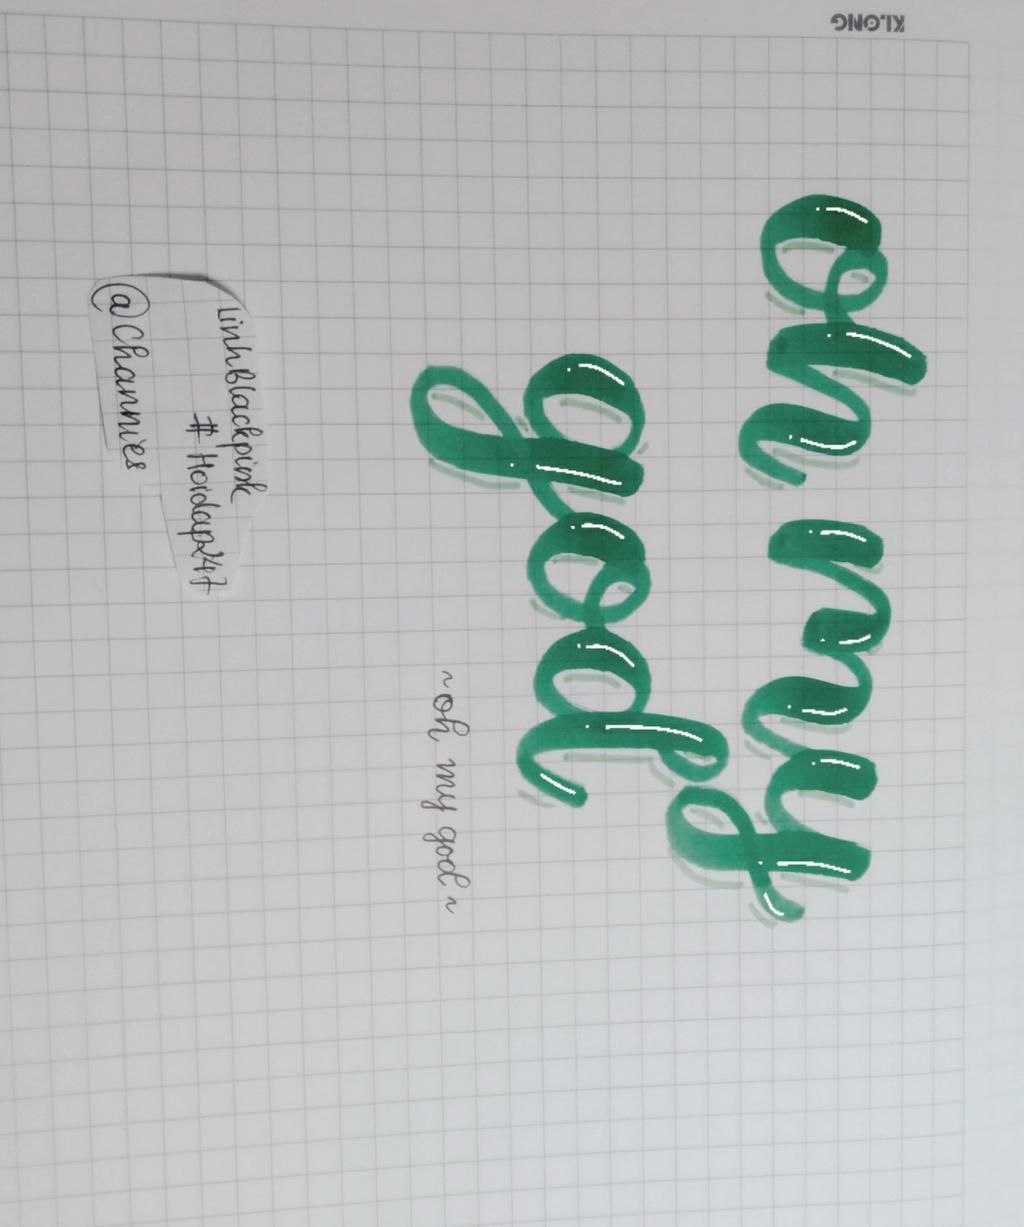 KLONG
oh my
god
~oh my god~
LinhBlackpink
#Hoidap247
@Channies